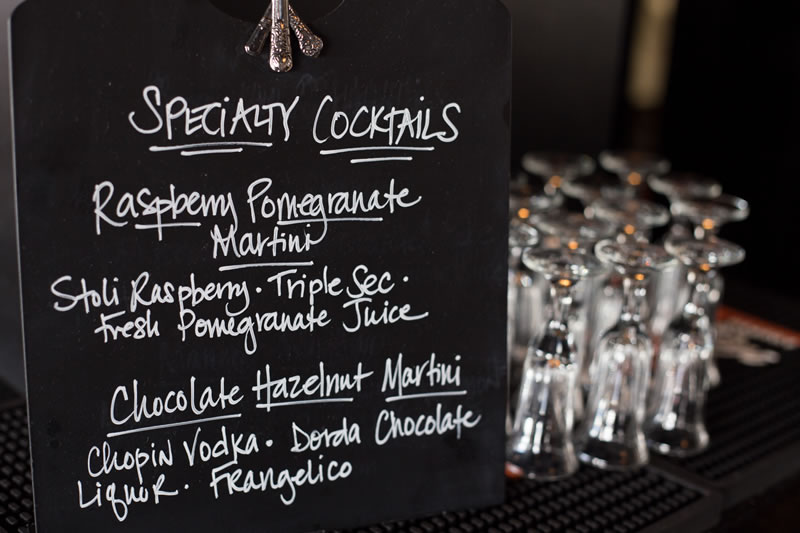 SPECIALTY COCKTAILS
Raspberry Pomegranate
Martini
Stoli Raspberry · Triple Sec ·
Fresh Pomegranate Juice
Chocolate Hazelnut Martini
Chopin Vodka · Dorda Chocolate
Liquor · Frangelico